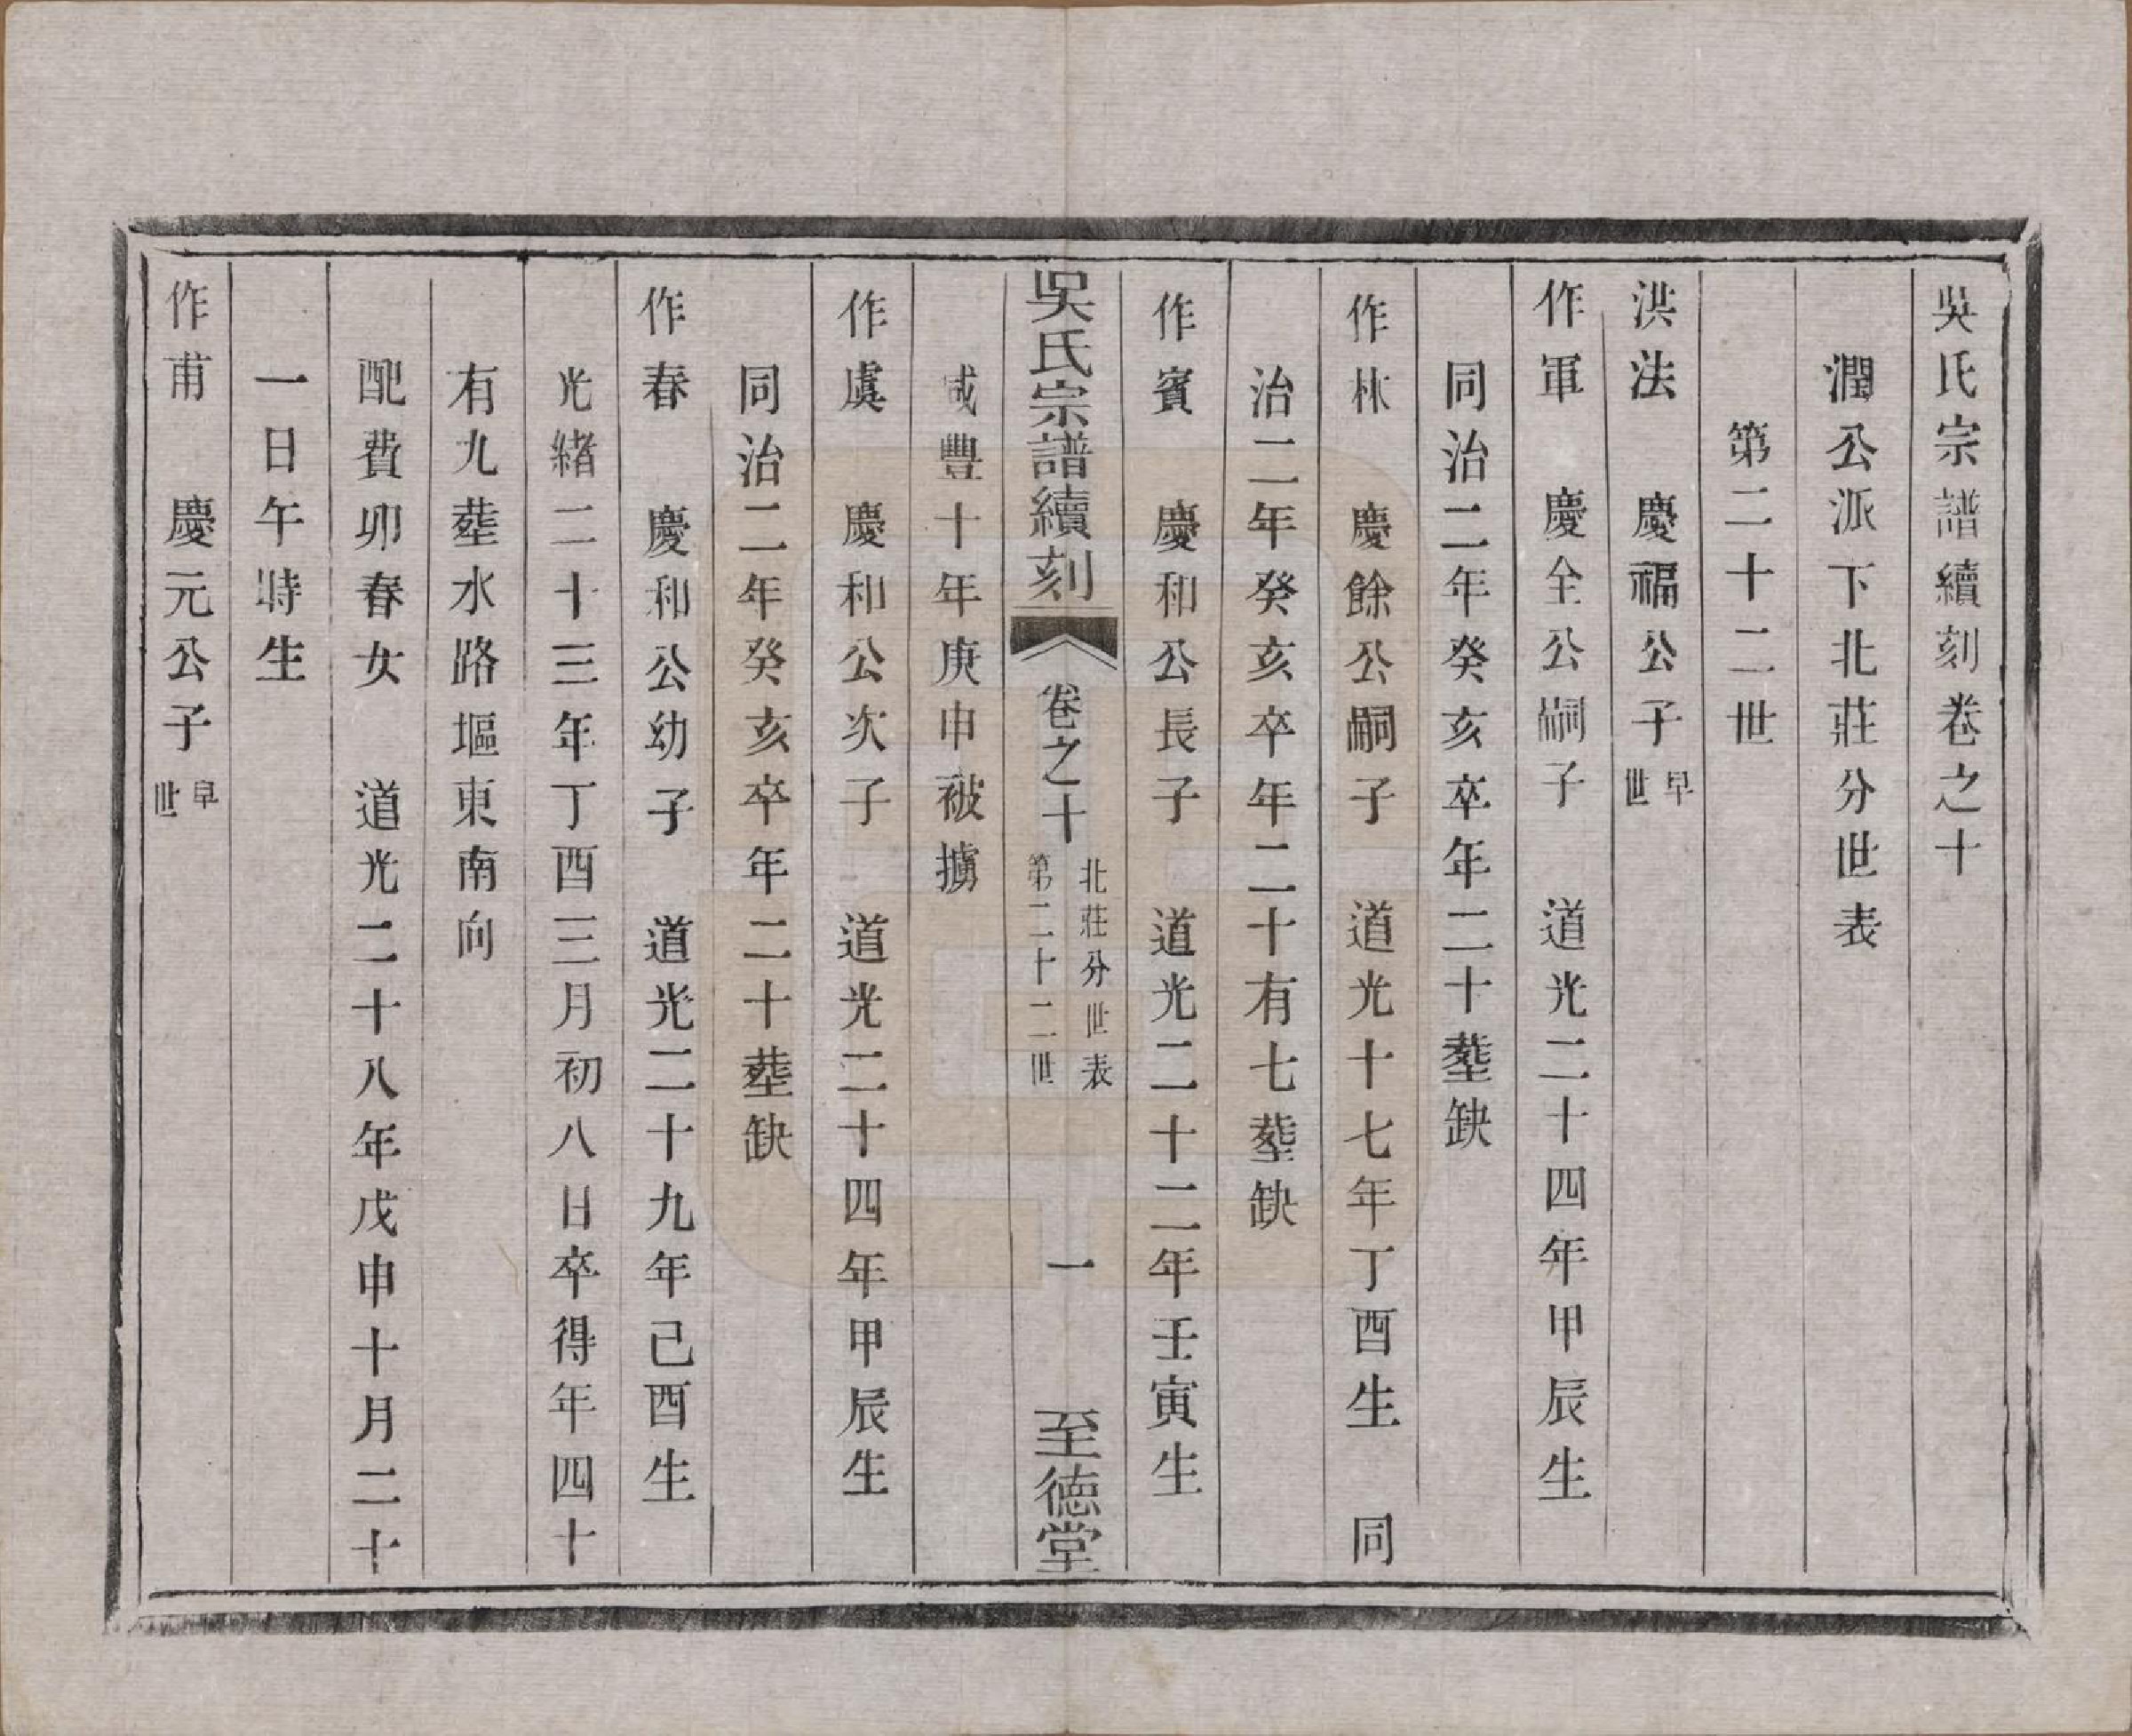 吳氏宗譜續刻卷之十
潤公派下北莊分世表
第二十二世
洪法　慶福公子早世
作軍　慶全公嗣子　道光二十四年甲辰生
同治二年癸亥卒年二十塟缺
作林　慶餘公嗣子　道光十七年丁酉生　同
治二年癸亥卒年二十有七塟缺
作賓　慶和公長子　道光二十二年壬寅生
咸豐十年庚申被擄
吳氏宗譜續刻　卷之十　北莊分世表　第二十二世　一　至德堂
作虞　慶和公次子　道光二十四年甲辰生
同治二年癸亥卒年二十塟缺
作春　慶和公幼子　道光二十九年己酉生
光緒二十三年丁酉三月初八日卒得年四十
有九塟水路塸東南向
配費卯春女　道光二十八年戊申十月二十
一日午時生
作甫　慶元公子早世